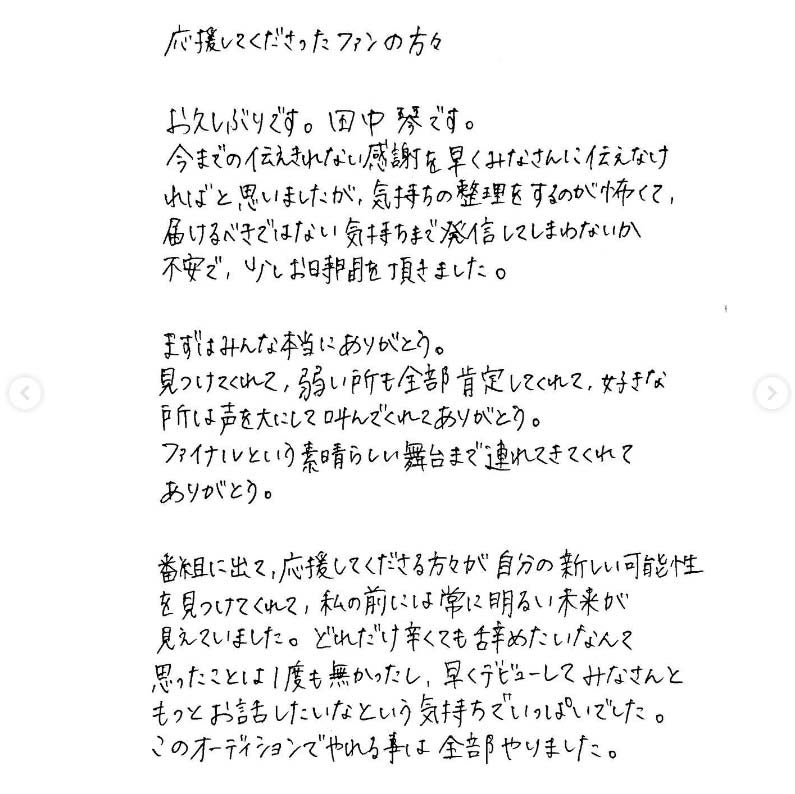 応援してくださったファンの方々
お久しぶりです。田中琴です。
今までの伝えきれない感謝を早くみなさんに伝えなけ
ればと思いましたが、気持ちの整理をするのが怖くて、
届けるべきではない気持ちまで発信してしまわないか
不安で、少しお時間を頂きました。
まずはみんな本当にありがとう。
見つけてくれて、弱い所も全部肯定してくれて、好きな
所は声を大にして叫んでくれてありがとう。
ファイナルという素晴らしい舞台まで連れてきてくれて
ありがとう。
番組に出て、応援してくださる方々が自分の新しい可能性
を見つけてくれて、私の前には常に明るい未来が
見えていました。どれだけ辛くても辞めたいなんて
思ったことは1度も無かったし、早くデビューしてみなさんと
もっとお話したいなという気持ちでいっぱいでした。
このオーディションでやれる事は全部やりました。